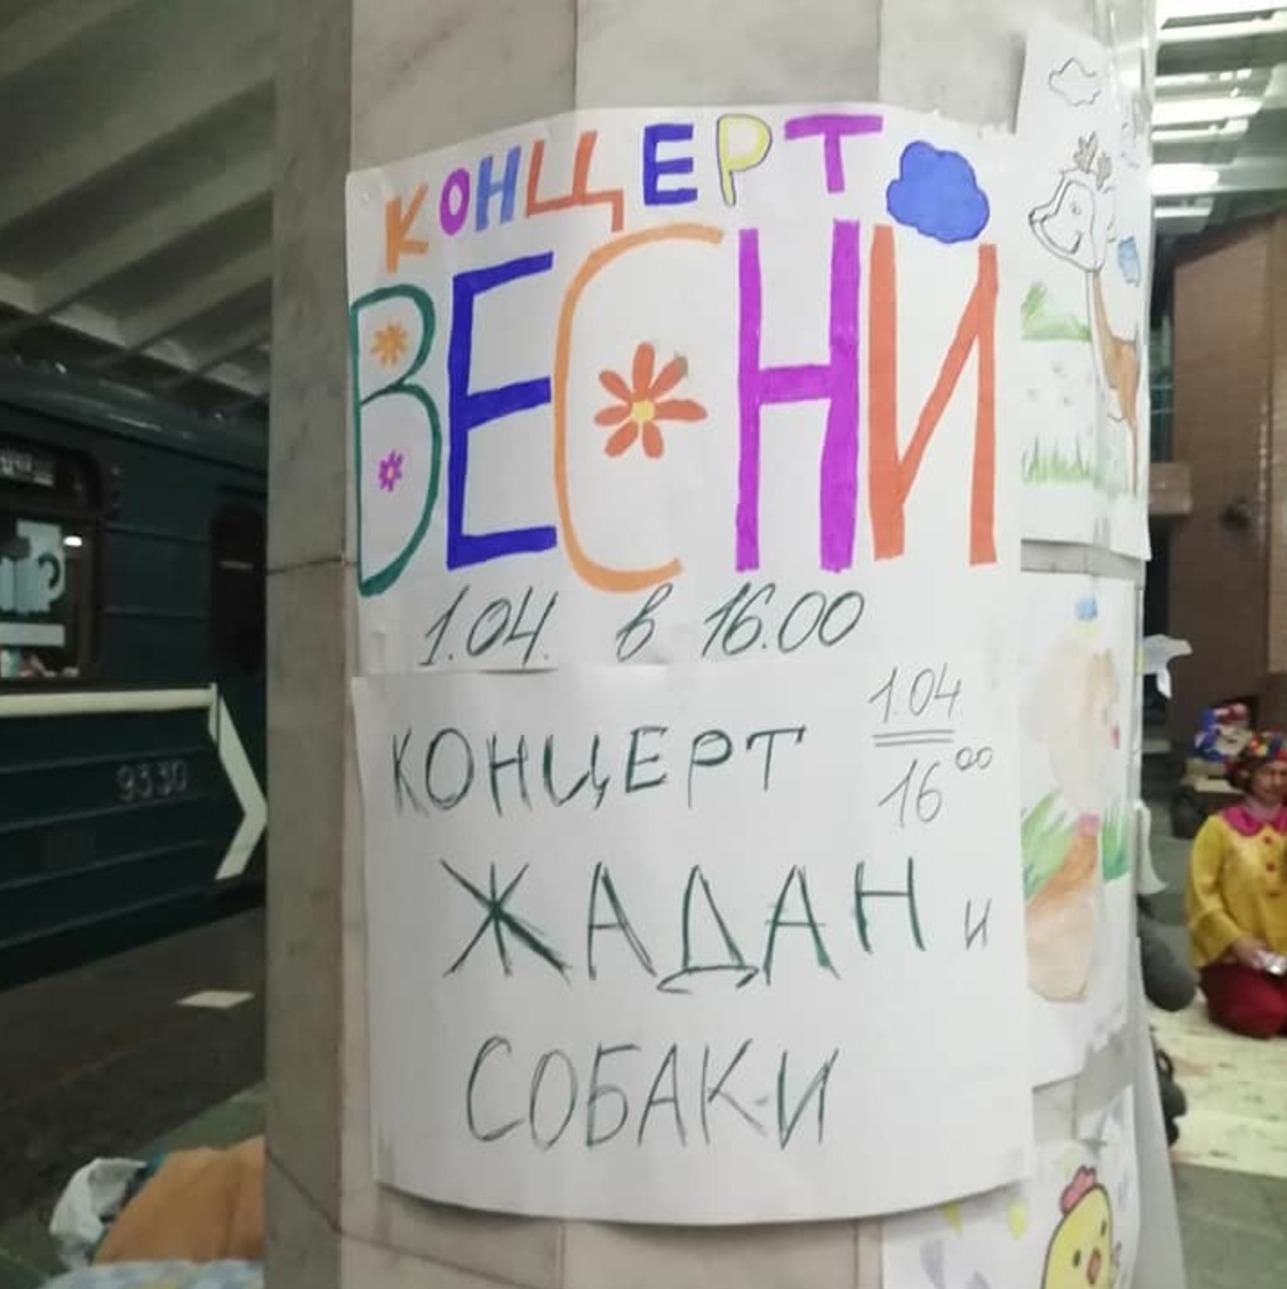 КОНЦЕРТ
ВЕСНИ
1.04. в 16.00
КОНЦЕРТ
1.04
16⁰⁰
ЖАДАН и
СОБАКИ
9330